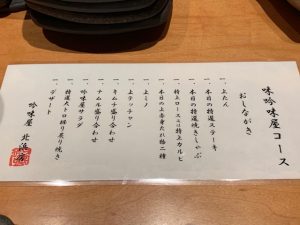 味吟味屋コース
おしながき
一 上たん
一 本日の特選ステーキ
一 本日の特選焼きしゃぶ
一 特上ロースと特上カルビ
一 本日の上赤身たれ焼二種
一 上ミノ
一 上テッチャン
一 キムチ盛り合わせ
一 ナムル盛り合わせ
一 吟味屋サラダ
一 特選大トロ握り炙り焼き
一 デザート
吟味屋 北浜店